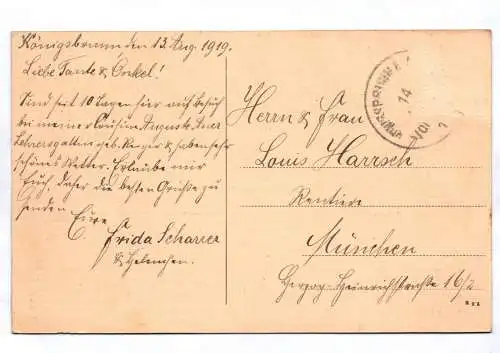 Königsbrunn, den 13. Aug. 1919.
Liebe Tante & Onkel!
Sind seit 10 Tagen hier auf Besuch
bei meiner Cousine Auguste
Lehrersgattin geb. Kryer & haben sehr
schönes Wetter. Erlaube mir
Euch, daher die besten Grüße zu
senden
Eure
Frida Scharrer
& Helenchen.
Herrn & Frau
Louis Harrsch
Rentiere
München
Herzog-Heinrichstraße 16/2
14